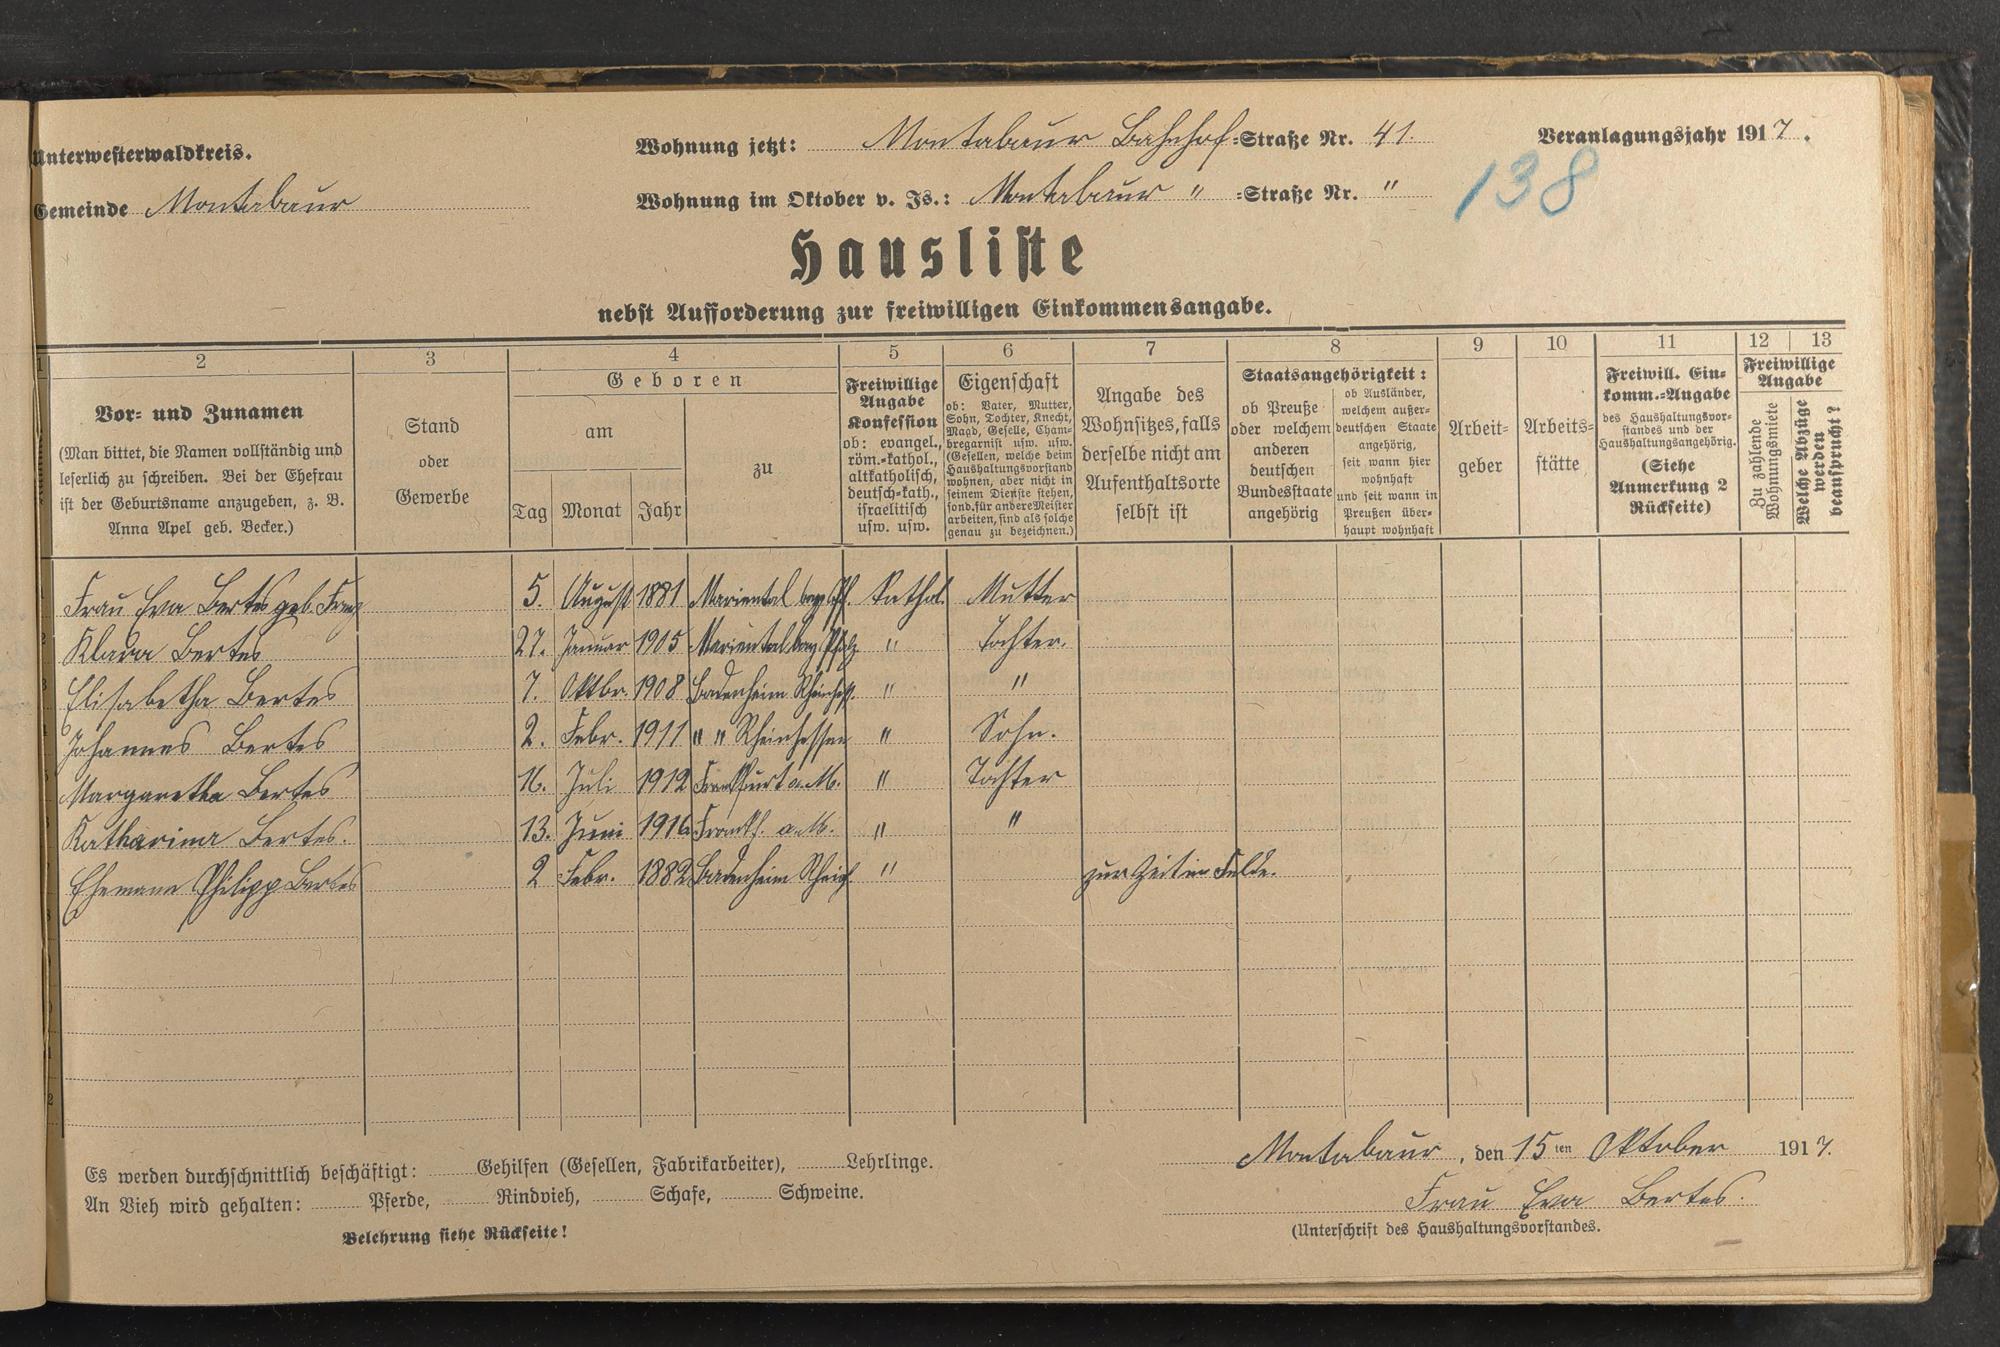 Unterwesterwaldkreis.
Wohnung jetzt: Montabaur Bahnhof=Straße Nr. 41.
Veranlagungsjahr 1917.
Gemeinde Montabaur
Wohnung im Oktober v. Js.: Montabaur " =Straße Nr. "
138
Hausliste
nebst Aufforderung zur freiwilligen Einkommensangabe.
1 2 3 4 5 6 7 8 9 10 11 12 13
Vor= und Zunamen
(Man bittet, die Namen vollständig und
leserlich zu schreiben. Bei der Ehefrau
ist der Geburtsname anzugeben, z. B.
Anna Apel geb. Becker.)
Stand
oder
Gewerbe
Geboren
am
Tag Monat Jahr
zu
Freiwillige
Angabe
Konfession
ob: evangel.,
röm.=kathol.,
altkatholisch,
deutsch=kath.,
israelitisch
usw. usw.
Eigenschaft
ob: Vater, Mutter,
Sohn, Tochter, Knecht,
Magd, Geselle, Cham=
bregarnist usw. usw.
(Gesellen, welche beim
Haushaltungsvorstand
wohnen, aber nicht in
seinem Dienste stehen,
sond. für andere Meister
arbeiten, sind als solche
genau zu bezeichnen.)
Angabe des
Wohnsitzes, falls
derselbe nicht am
Aufenthaltsorte
selbst ist
Staatsangehörigkeit:
ob Preuße
oder welchem
anderen
deutschen
Bundesstaate
angehörig
ob Ausländer,
welchem außer=
deutschen Staate
angehörig,
seit wann hier
wohnhaft
und seit wann in
Preußen über=
haupt wohnhaft
Arbeit=
geber
Arbeits=
stätte
Freiwill. Ein=
komm.=Angabe
des Haushaltungsvor=
standes und der
Haushaltungsangehörig.
(Siehe
Anmerkung 2
Rückseite)
Freiwillige
Angabe
Zu zahlende
Wohnungsmiete
Welche Abzüge
werden
beansprucht?
Frau Eva Bertes geb. Frenz 5. August 1881 Mariental bay. Pf. Kathol. Mutter
Klara Bertes 27. Januar 1905 Mariental bay. Pfalz " Tochter.
Elisabetha Bertes 7. Oktbr. 1908 Badenheim Rheinhess. " "
Johannes Bertes 2. Febr. 1911 " " Rheinhessen " Sohn.
Margaretha Bertes 16. Juli 1912 Frankfurt a. M. " Tochter
Katharina Bertes. 13. Juni 1916 Frankf. a. M. " "
Ehemann Philipp Bertes 2 Febr. 1882 Badenheim Rheinh. " zur Zeit im Felde.
Es werden durchschnittlich beschäftigt: Gehilfen (Gesellen, Fabrikarbeiter), Lehrlinge.
An Vieh wird gehalten: Pferde, Rindvieh, Schafe, Schweine.
Belehrung siehe Rückseite!
Montabaur, den 15ten Oktober 1917.
Frau Eva Bertes.
(Unterschrift des Haushaltungsvorstandes.